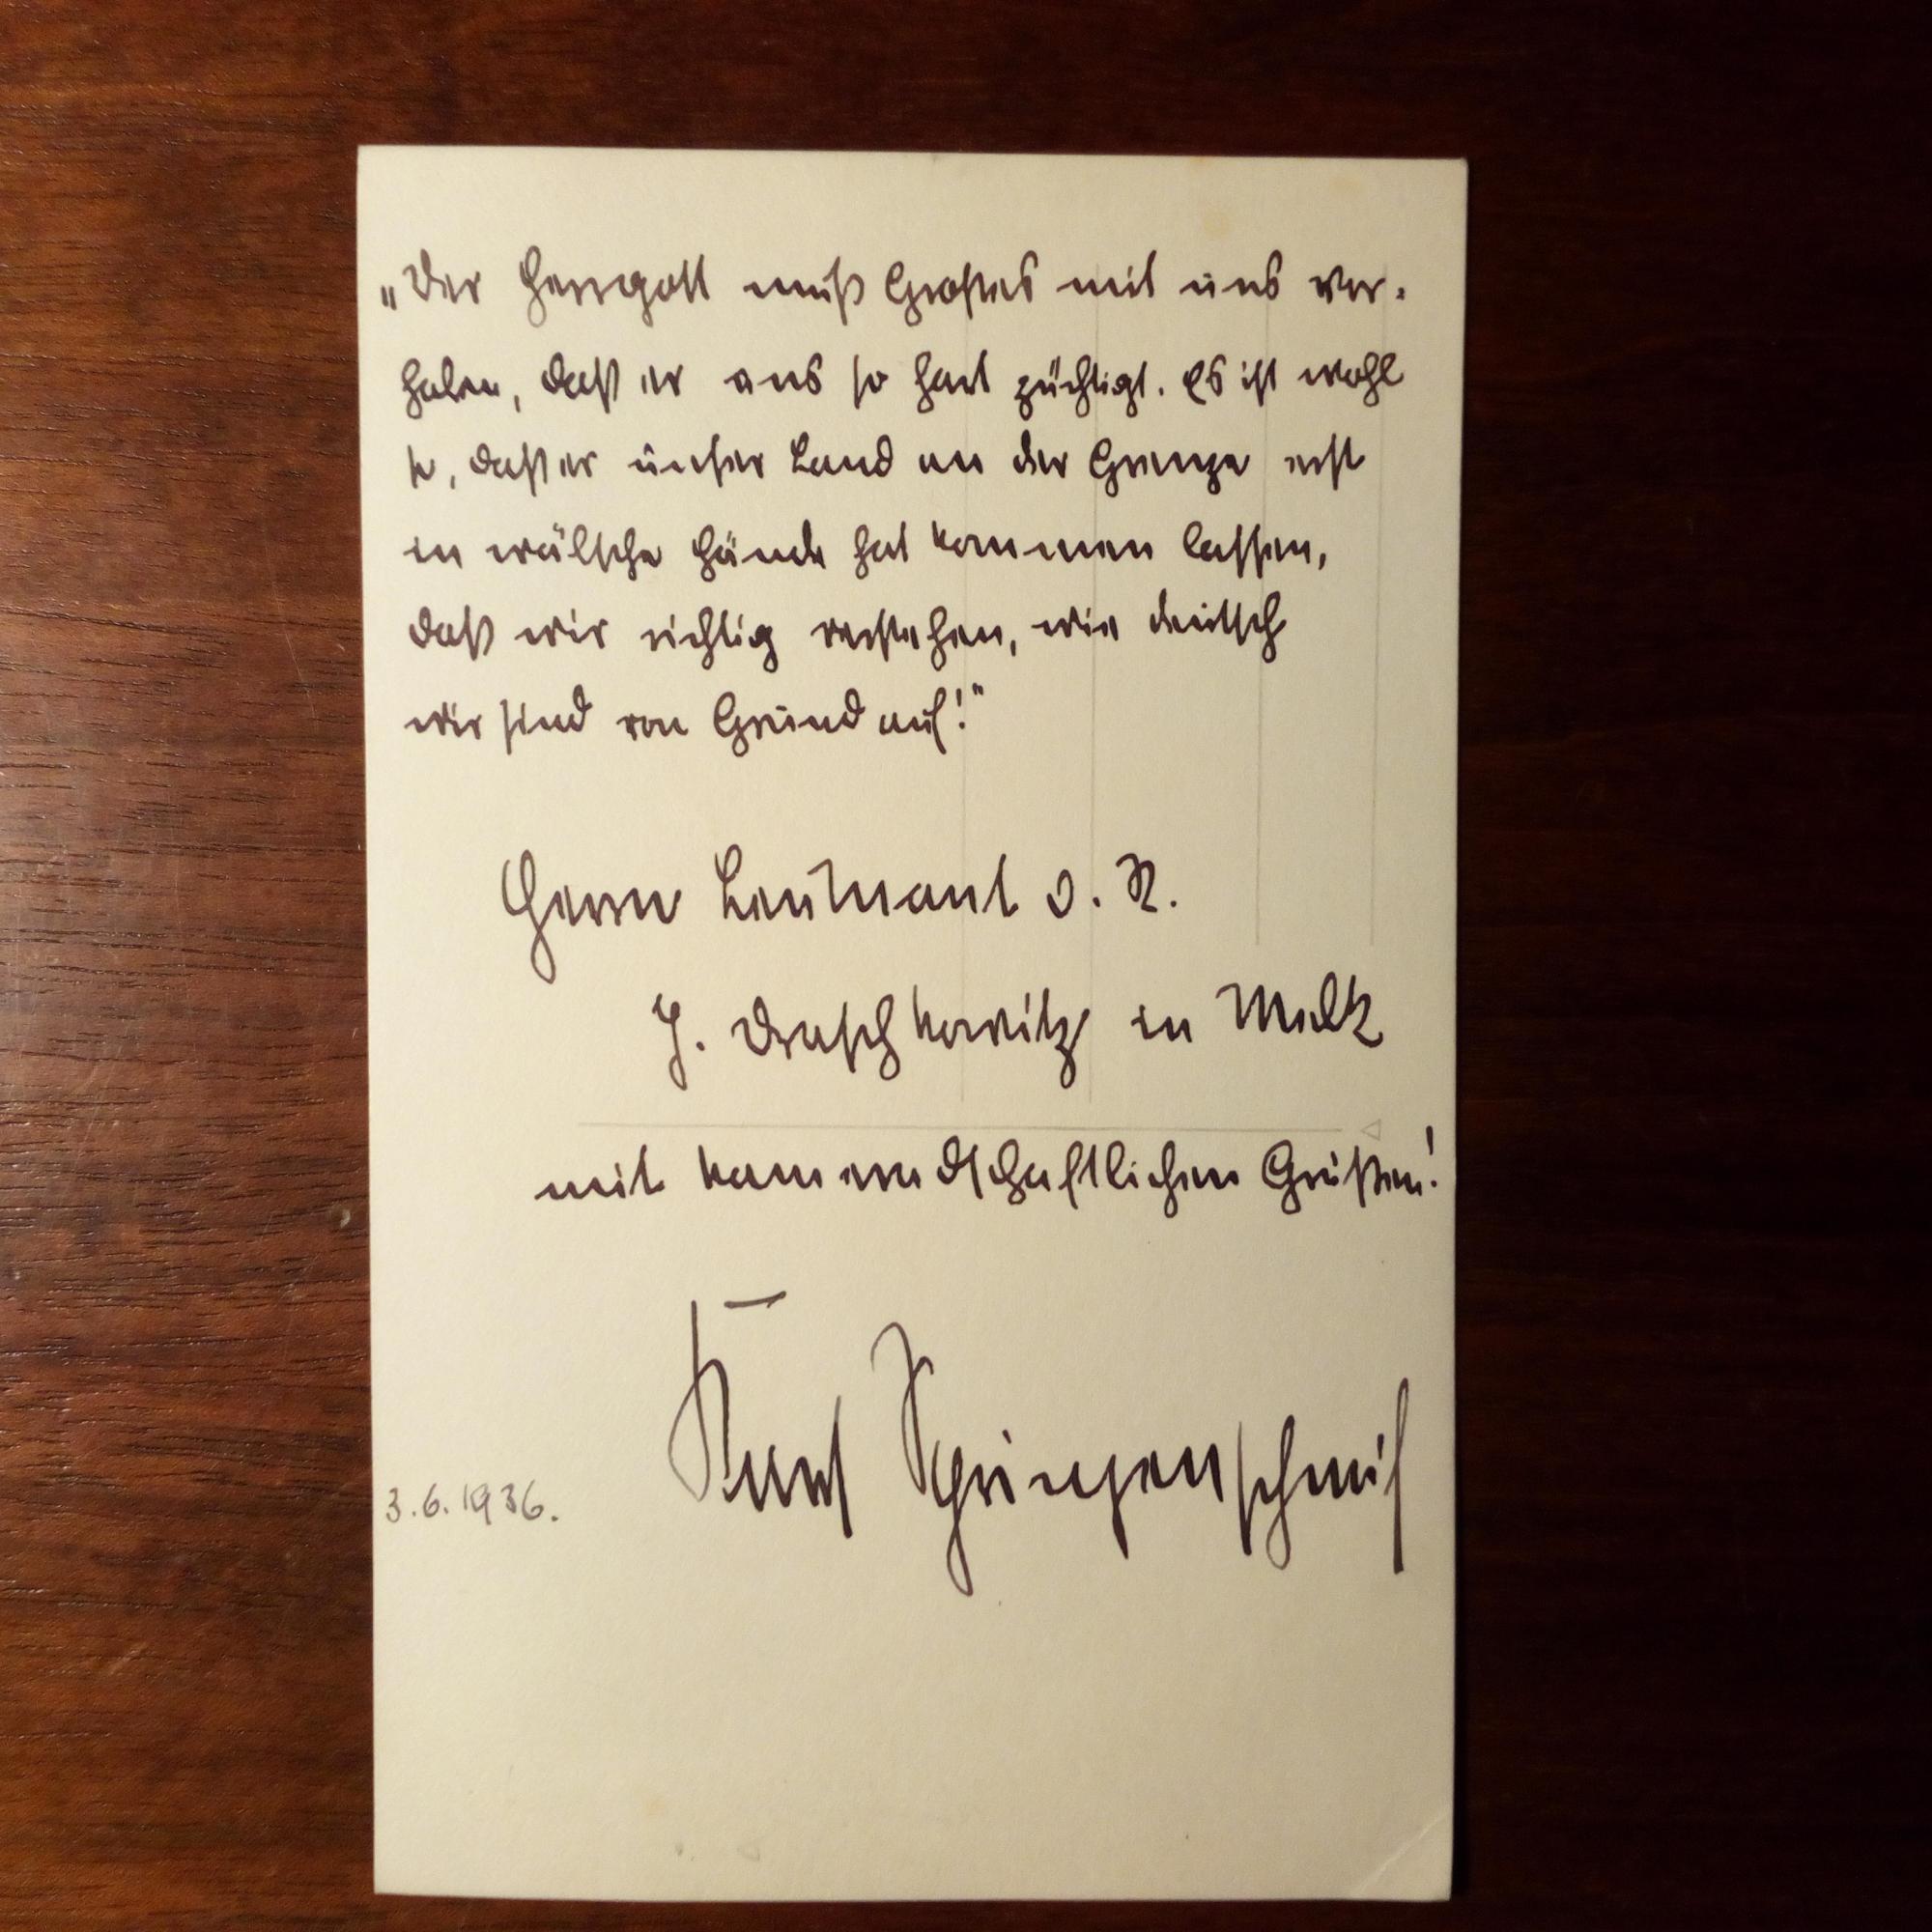 „Der Herrgott muß Großes mit uns vor-
haben, daß er uns so hart züchtigt. Es ist wohl
so, daß er unser Land an der Grenze erst
in wälsche Hände hat kommen lassen,
daß wir richtig verstehen, wie deutsch
wir sind von Grund auf!"
Herrn Leutnant d. R.
J. Draschkowitz in Melk
mit kameradschaftlichen Grüßen!
Karl Springenschmid
3.6.1936.